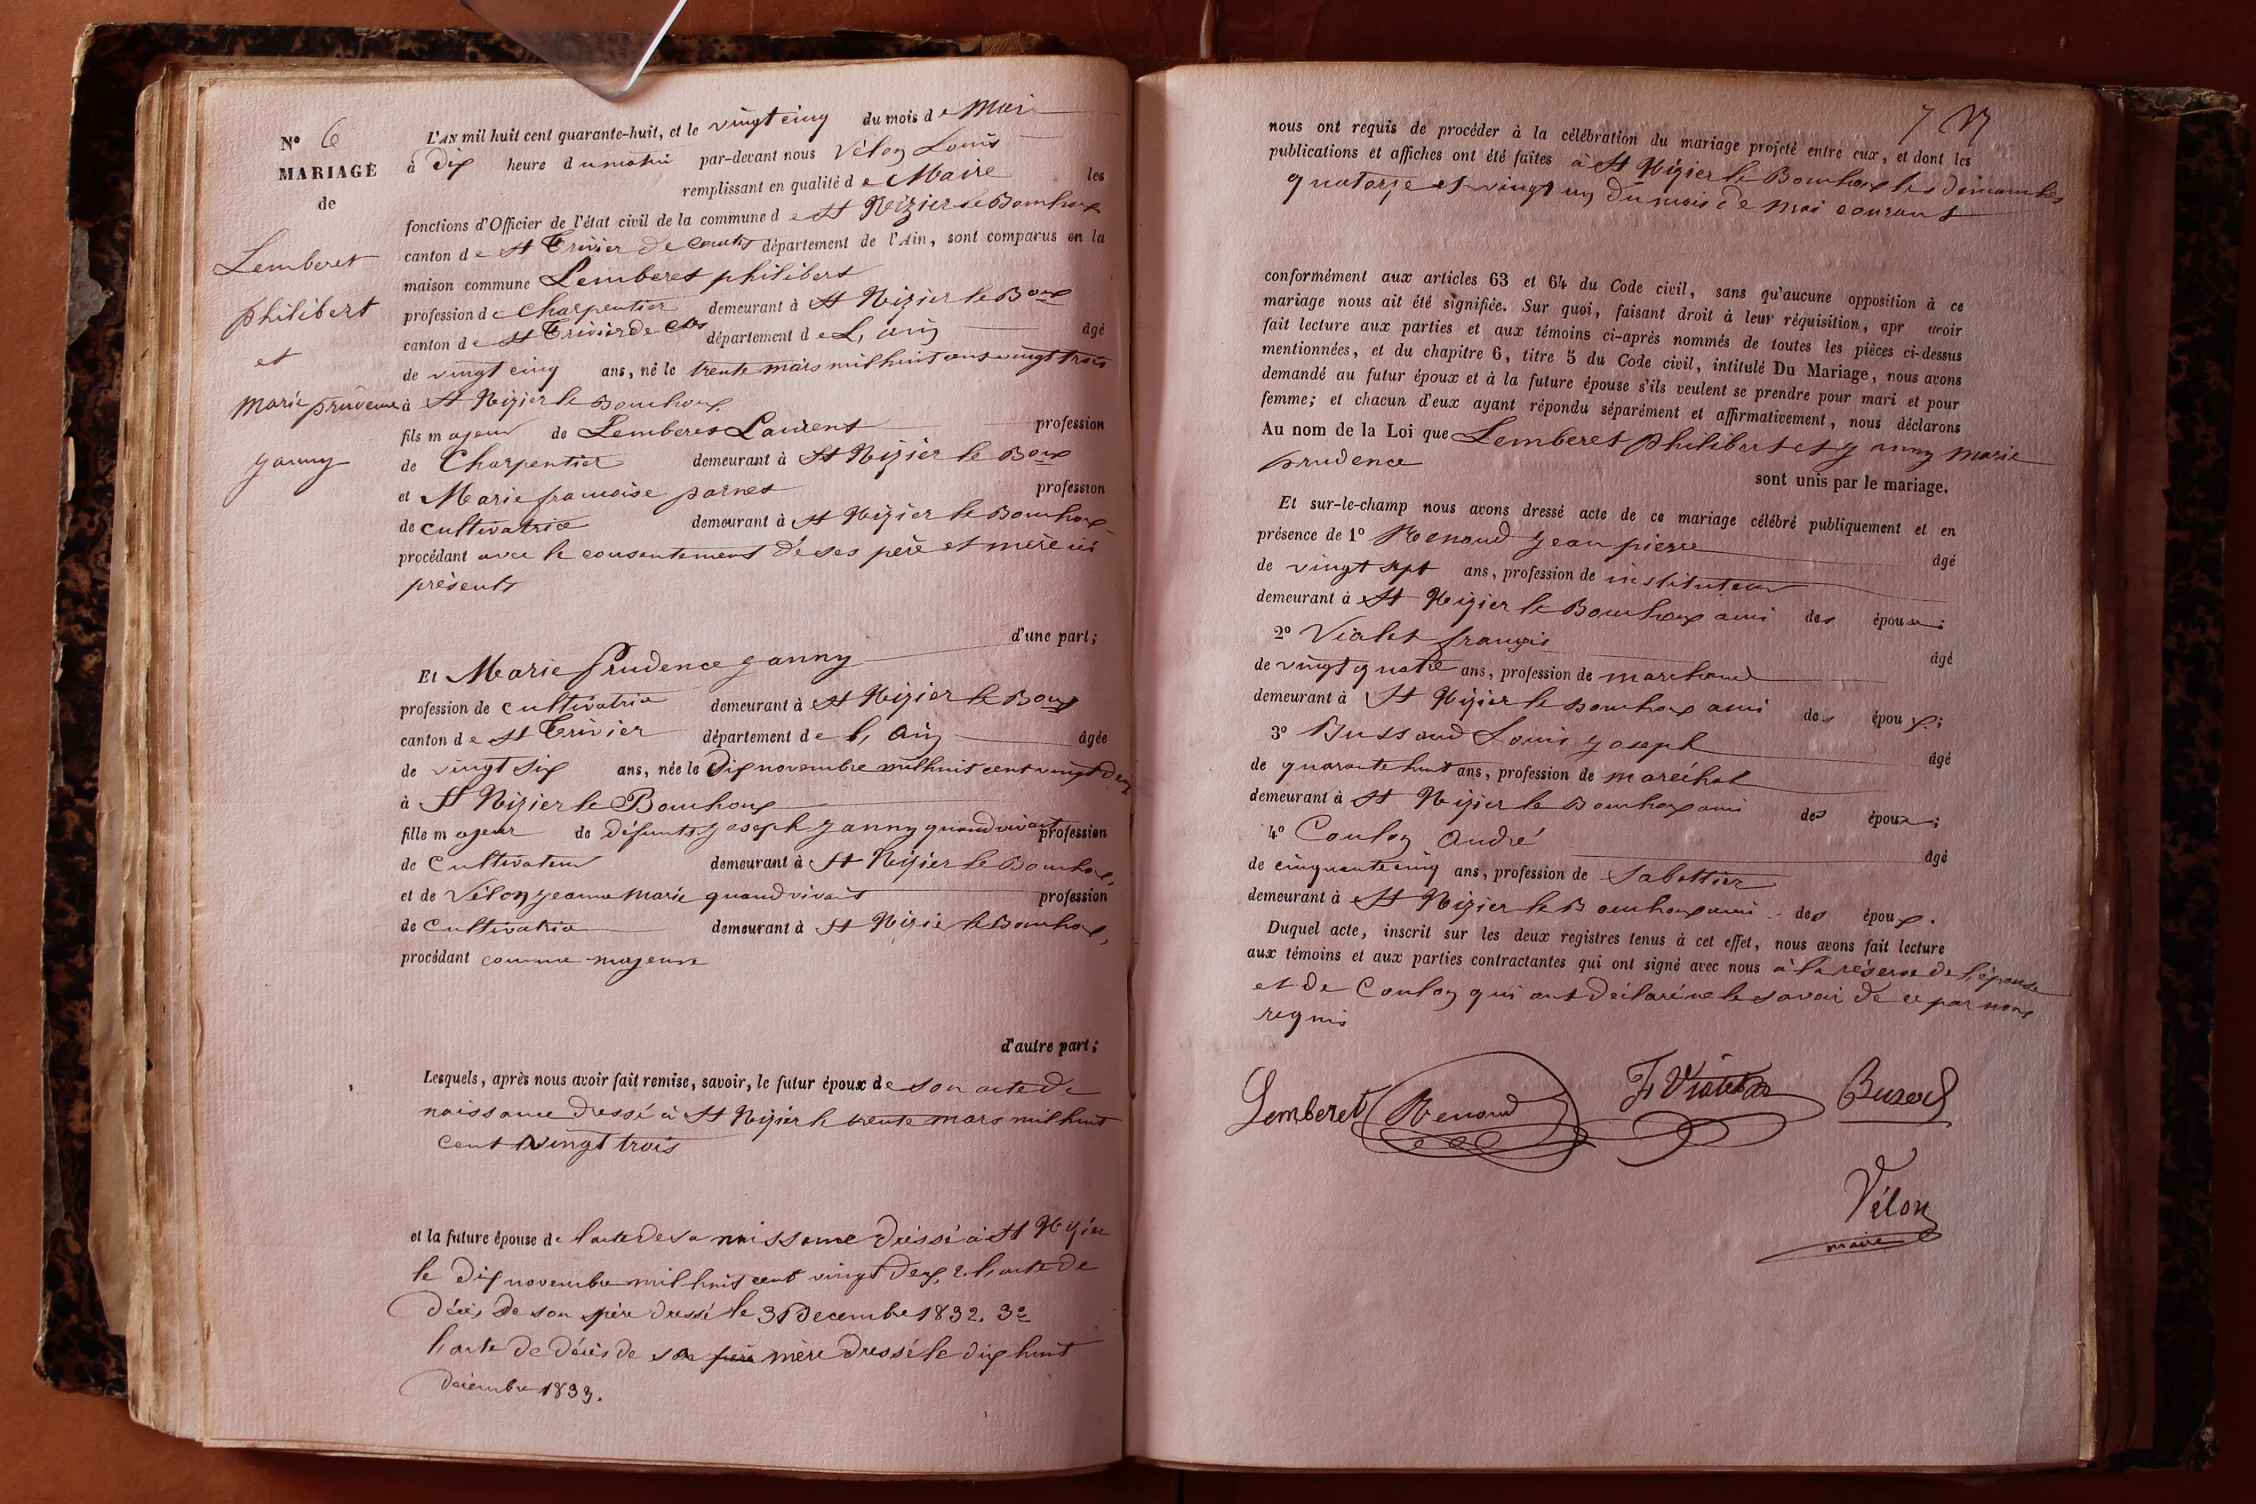 N° 6
MARIAGE
de
Lemberet
philibert
et
marie prudence
janny
L'AN mil huit cent quarante-huit, et le vingt cinq du mois de Mai
à dix heure du matin par-devant nous Vélon Louis
remplissant en qualité de Maire les
fonctions d'Officier de l'état civil de la commune de St Nizier le Bouchoux
canton de St Trivier de Courtes département de l'Ain, sont comparus en la
maison commune Lemberet philibert
profession de charpentier demeurant à St Nizier le Boux
canton de St Trivier de Ctes département de L'ain âgé
de vingt cinq ans, né le trente mars mil huit cent vingt trois
à St Nizier le Bouchoux
fils majeur de Lemberet Laurent profession
de Charpentier demeurant à St Nizier le Boux
et Marie françoise parnet profession
de cultivatrice demeurant à St Nizier le Bouchoux
procédant avec le consentement de ses père et mère ici
présents
d'une part;
Et Marie prudence janny
profession de cultivatrice demeurant à St Nizier le Boux
canton de St Trivier département de l'Ain âgée
de vingt six ans, née le dix novembre mil huit cent vingt deux
à St Nizier le Bouchoux
fille majeur de défunts joseph janny quand vivait profession
de Cultivateur demeurant à St Nizier le Bouchoux,
et de Vélon jeanne marie quand vivait profession
de Cultivatrice demeurant à St Nizier le Bouchoux,
procédant comme majeure
d'autre part;
Lesquels, après nous avoir fait remise, savoir, le futur époux de son acte de
naissance dressé à St Nizier le trente mars mil huit
cent vingt trois
et la future épouse de l'acte de sa naissance dressé à St Nizier
le dix novembre mil huit cent vingt deux, 2. l'acte de
décès de son père dressé le 31 Decembre 1832. 3e
l'acte de décès de sa père mère dressé le dix huit
décembre 1833.
7
nous ont requis de procéder à la célébration du mariage projeté entre eux, et dont les
publications et affiches ont été faites à St Nizier le Bouchoux les dimanches
quatorze et vingt un du mois de mai courant
conformément aux articles 63 et 64 du Code civil, sans qu'aucune opposition à ce
mariage nous ait été signifiée. Sur quoi, faisant droit à leur réquisition, apr avoir
fait lecture aux parties et aux témoins ci-après nommés de toutes les pièces ci-dessus
mentionnées, et du chapitre 6, titre 5 du Code civil, intitulé Du Mariage, nous avons
demandé au futur époux et à la future épouse s'ils veulent se prendre pour mari et pour
femme; et chacun d'eux ayant répondu séparément et affirmativement, nous déclarons
Au nom de la Loi que Lemberet philibert et janny marie
prudence
sont unis par le mariage.
Et sur-le-champ nous avons dressé acte de ce mariage célébré publiquement et en
présence de 1° Renoud jean pierre âgé
de vingt sept ans, profession de instituteur
demeurant à St Nizier le Bouchoux ami des époux;
2° Violet françois âgé
de vingt quatre ans, profession de marchand
demeurant à St Nizier le Bouchoux ami des époux;
3° Bussoud Louis joseph âgé
de quarante huit ans, profession de maréchal
demeurant à St Nizier le Bouchoux ami des époux;
4° Coulon André âgé
de cinquante cinq ans, profession de Sabottier
demeurant à St Nizier le Bouchoux ami des époux.
Duquel acte, inscrit sur les deux registres tenus à cet effet, nous avons fait lecture
aux témoins et aux parties contractantes qui ont signé avec nous à la réserve de l'épouse
et de Coulon qui ont déclaré ne le savoir de ce par nous
requis
Lemberet Renoud
Vélon
maire